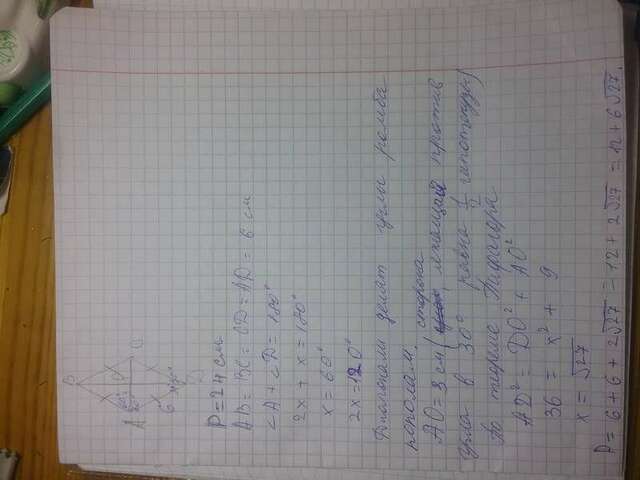 B
A
O
C
D
6
P = 24 см
AB = BC = CD = AD = 6 см
∠A + ∠D = 180°
2x + x = 180°
x = 60°
2x = 120°
Диагонали делят углы ромба
пополам.
AO = 3 см (сторона, лежащая против
угла в 30° равна 1/2 гипотенузы)
По теореме Пифагора
AD² = DO² + AO²
36 = x² + 9
x = √27
P = 6 + 6 + 2√27 = 12 + 2√27 = 12 + 6√27.